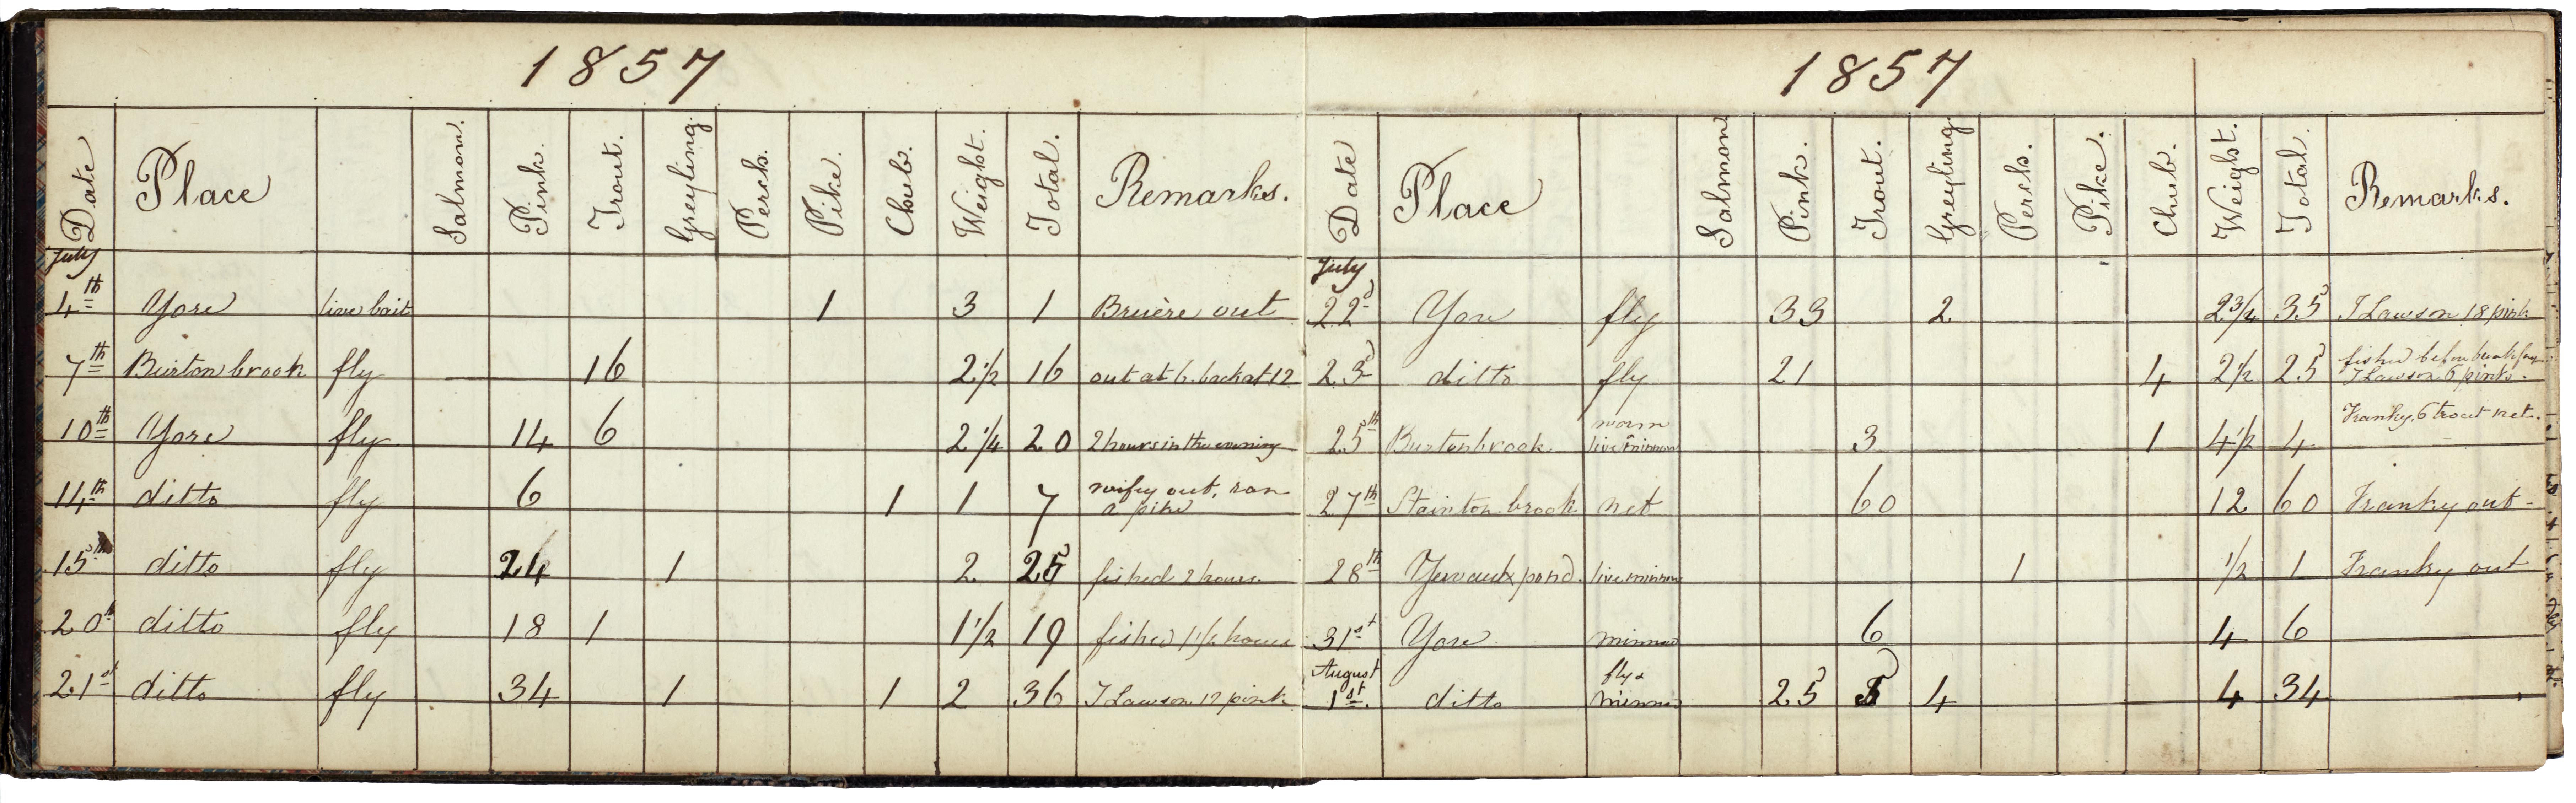 1857
Date Place Salmon. Pink. Trout. Greyling. Perch. Pike. Chub. Weight. Total. Remarks.
July
4th Yore live bait 1 3 1 Bruère out
7th Burton brook fly 16 2 1/2 16 out at 6. back at 12
10th Yore fly 14 6 2 1/4 20 2 hours in the evening
14th ditto fly 6 1 1 7 wify out, ran
a pike
15th ditto fly 24 1 2 25 fished 2 hours.
20th ditto fly 18 1 1 1/2 19 fished 1 1/2 hours
21st ditto fly 34 1 1 2 36 J Lawson 12 pink
1857
Date Place Salmon Pink. Trout. Greyling Perch. Pike. Chub. Weight. Total. Remarks.
July
22d Yore fly 33 2 2 3/4 35 J Lawson 18 pink
23d ditto fly 21 4 2 1/2 25 fished before breakfast
J Lawson 6 pinks.
25th Burton brook worm
live minnow 3 1 4 1/2 4 Franky, 6 trout net.
27th Stainton brook net 60 12 60 Franky out-
28th Yervaulx pond. live minnow 1 1/2 1 Franky out
31st Yore minnow 6 4 6
August
1st. ditto fly &
minnow 25 5 4 4 34